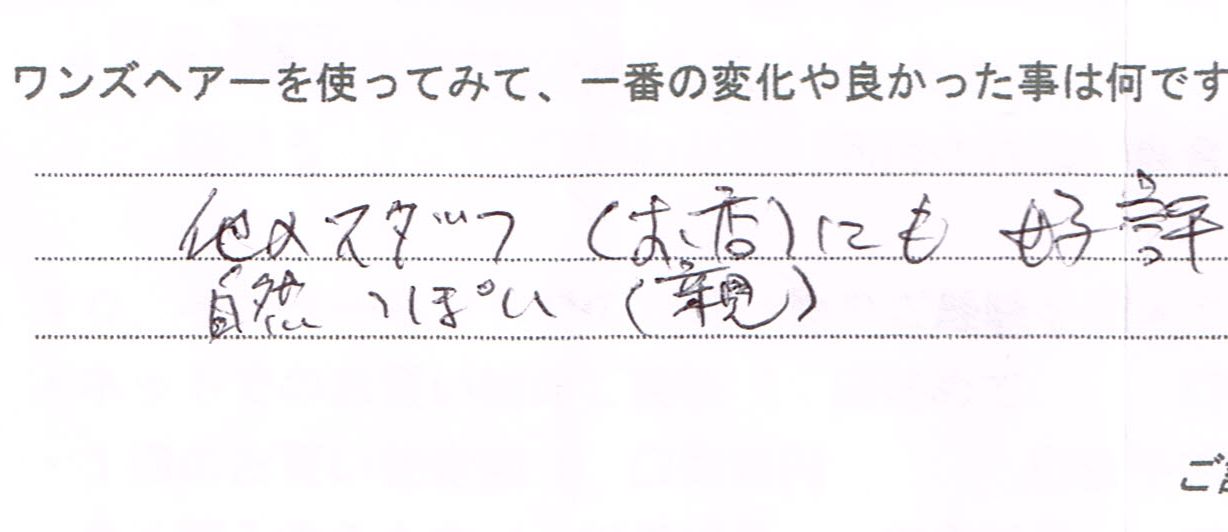 ワンズヘアーを使ってみて、一番の変化や良かった事は何です
他のスタッフ（お店）にも好評
自然っぽい（親）
ご